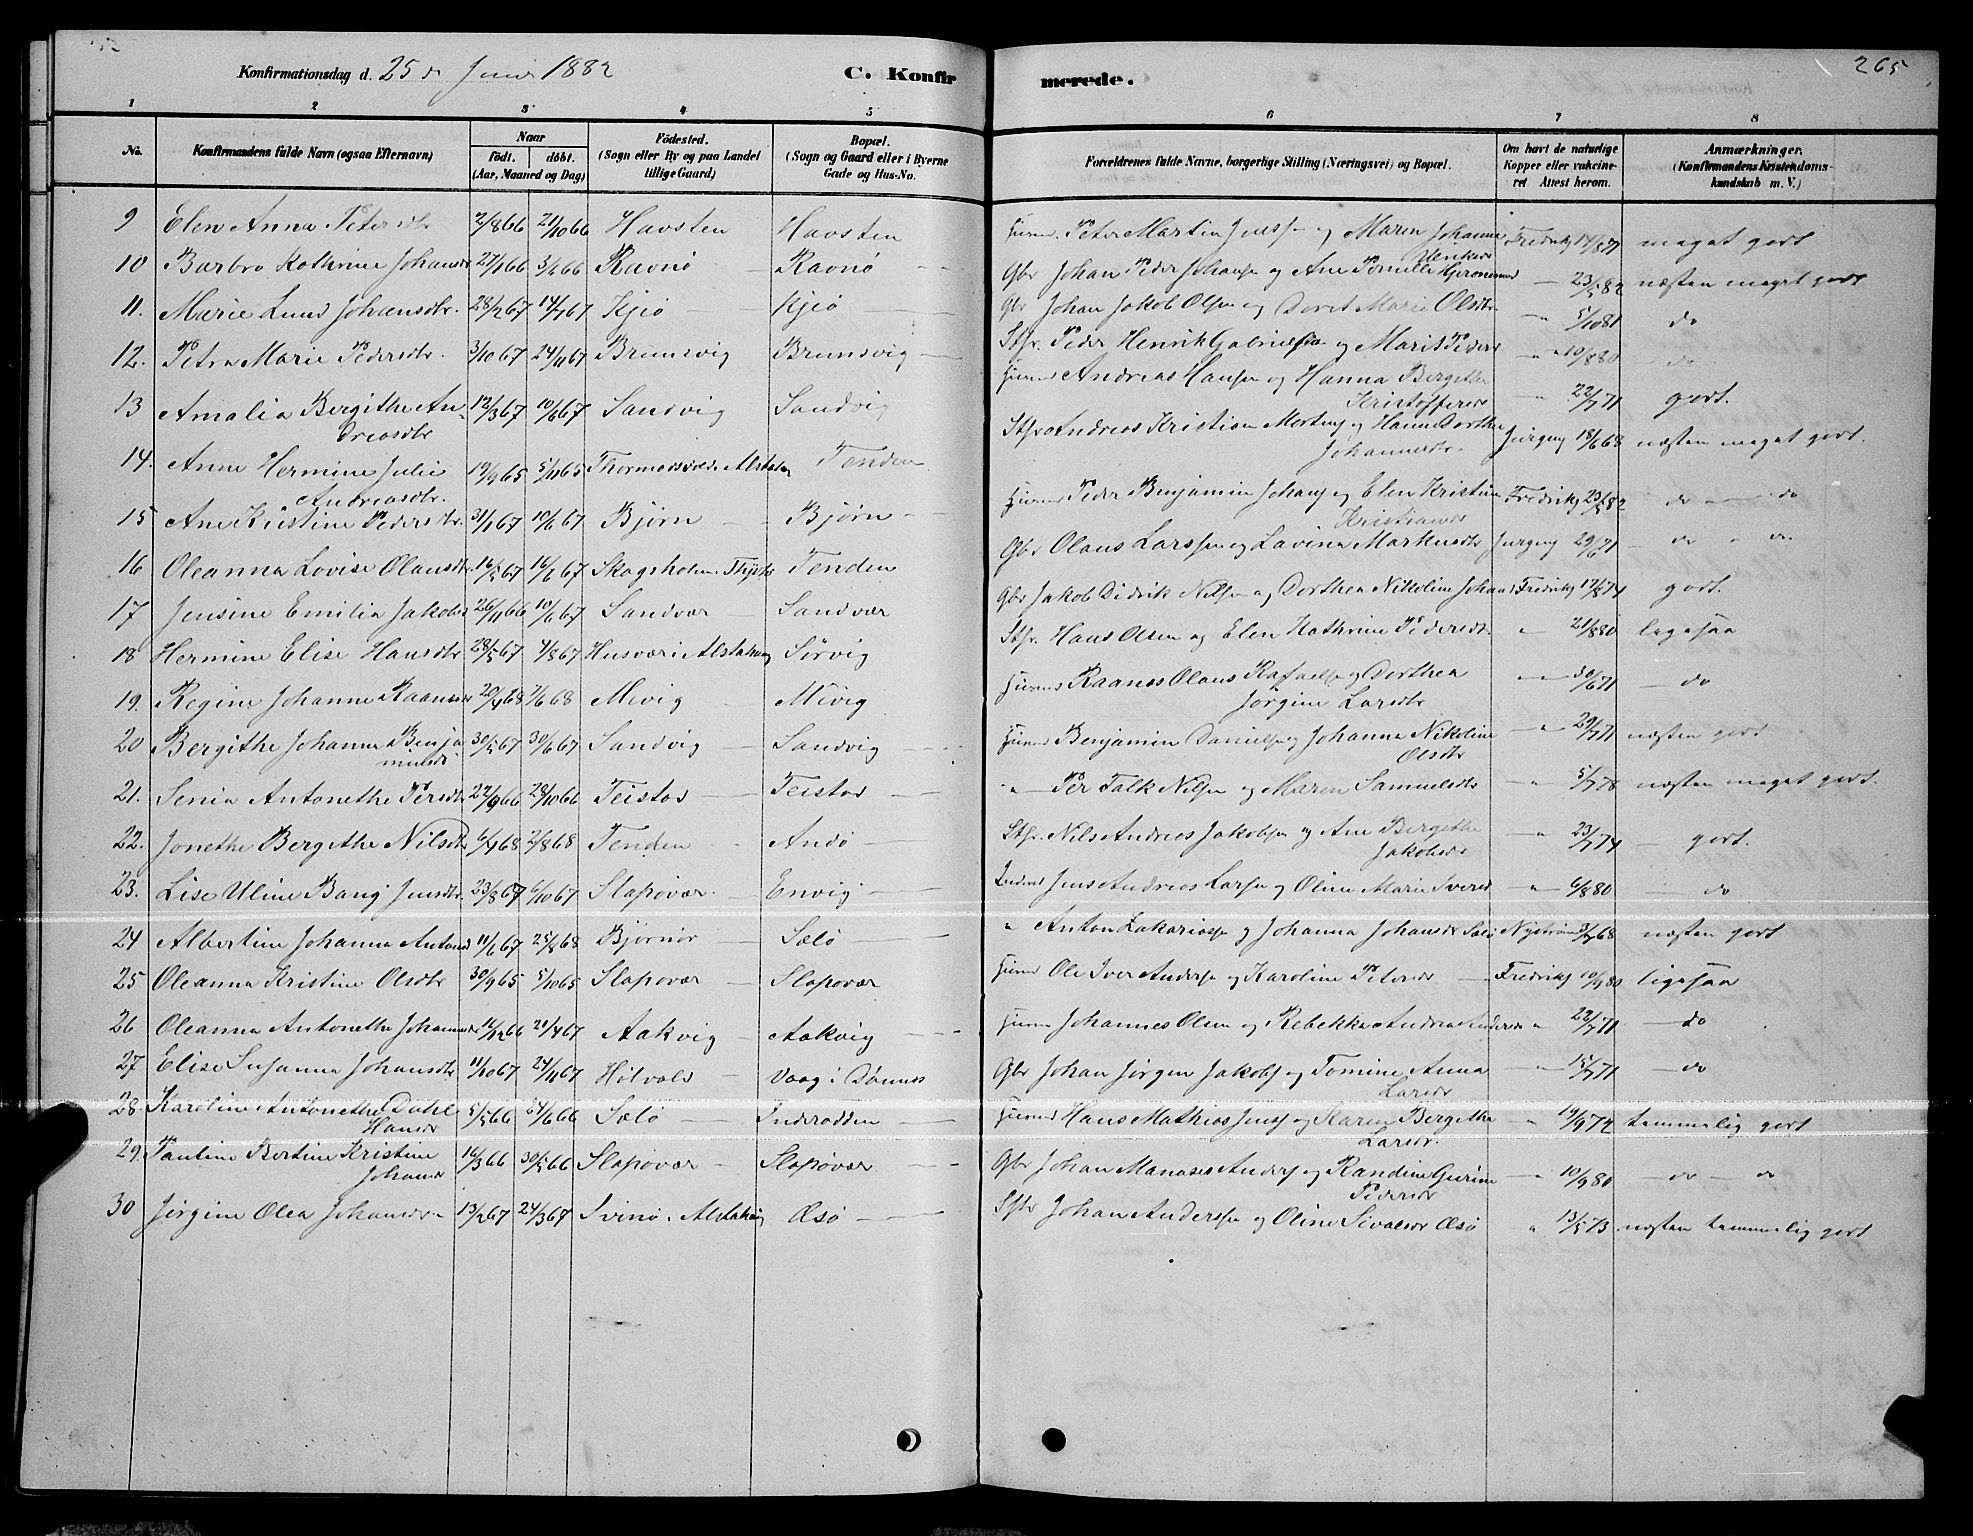 Konfirmationsdag d. 25de Juni 1882
C. Konfirmerede.
265
1 2 3 4 5 6 7 8
No.
Konfirmandens fulde Navn (ogsaa Efternavn)
Naar
födt. döbt.
(Aar, Maaned og Dag)
Födested.
(Sogn eller By og paa Landet
tillige Gaard)
Bopæl.
(Sogn og Gaard eller i Byerne
Gade og Hus-No.
Forældrenes fulde Navne, borgerlige Stilling (Næringsvei) og Bopæl.
Om havt de naturlige
Kopper eller vakcine-
ret Attest herom.
Anmærkninger.
(Konfirmandens Kristendoms-
kundskab m. V.)
9 Elen Anna Petersdtr 2/8 66 21/10 66 Havsten Havsten Peter Martin Jenss. og Maren Johanna Fredriks 14/8 71 meget godt
10 Barbro Kathrine Johansdr 27/1 66 3/2 66 Ravnø Ravnø Gbr Johan Peder Johans. og Ane Pernille 23/5 82 næsten meget godt
11. Marie Lund Johansdtr. 28/2 67 14/7 67 Kjeø Kjeø Gbr Johan Jakob Olsen og Doret Marie Olsdtr " 5/10 81 do
12. Petra Marie Pedersdtr. 3/10 67 24/11 67 Brunsvig Brunsvig Stfr. Peder Henrik Gabrielsen og Marit Pedersdr " 10/8 80 do
13 Amalia Bergithe An-
dreasdtr 12/3 67 10/6 67 Sandvig Sandvig Andreas Hansen og Hanna Bergithe
Kristoffersdr " 22/7 71 godt.
14. Anne Hermine Julie
Andreasdtr. 19/9 65 5/11 65 Alstahaug Tenden Stfr Andreas Kristian Mortens. og Hanna Dorthea
Johannesdr. 18/6 68 næsten meget godt.
15 Ane Kristine Pedersdtr. 3/1 67 10/6 67 Bjørn Bjørn Peder Benjamin Johans. og Elen Kristine
Kristiansdr Fredriks 23/5 82 do do
16 Oleanna Lovise Olausdtr 16/5 67 16/6 67 Skogsholm Tjøtta Tenden Gbr Olaus Larssen og Lavina Markusdtr 29/6 71 do
17 Jensine Emilia Jakobsd 26/11 66 10/6 67 Sandvær Sandvær Gbr Jakob Didrik Nilsen og Dorthea Nikoline Johansd Fredriks 17/8 74 godt.
18 Hermine Elise Hansdtr 28/5 67 4/8 67 Husvær i Alstahaug Sørvig Stfr. Hans Olsen og Elen Kathrine Pedersdr. " 21/8 80 ligesaa
19. Regine Johanne Raanesdr 20/4 68 7/6 68 Meivig Meivig Raanes Olaus Rafaels. og Dorthea
Jørgine Larsdtr " 30/6 71 do
20 Bergithe Johanna Benja
minsdr 30/5 67 30/6 67 Sandvig Sandvig Benjamin Daniels. og Johanna Nikoline
Olsdtr " 29/7 71 næsten godt
21. Senia Antonethe Persdtr 22/9 66 28/10 66 Teistod Teistod " Per Falk Nilsen og Maren Samuelsdtr " 5/7 78 næsten meget godt.
22. Jonethe Bergithe Nilsdtr 6/4 68 2/8 68 Tenden Andø Stfr. Nils Andreas Jakobsen og Ane Bergithe
Jakobsdr " 23/7 74 godt.
23. Lise Uline Bang Jensdtr 23/8 67 6/10 67 Slapøvær Envig Jens Andreas Larsen og Oline Marie Iversd " 6/8 80 do
24 Albertine Johanna Antonsd 11/6 67 25/8 68 Bjørnør Sælø " Anton Zakariass. og Johanna Johansdr Sælø Nystrøm 68 næsten godt
25 Oleanna Kristine Olsdtr 30/9 65 5/10 65 Slapøvær Slapøvær Ole Iver Anders. og Karoline Petersdr Fredriks 10/9 80 ligesaa
26 Oleanna Antonetha Johannesdr 16/12 66 21/4 67 Aakvig Aakvig Johannes Olsen og Rebekka Andrea Andersdr " 22/7 71 do
27 Elise Susanna Johansdtr 11/10 67 24/11 67 Holvold Vaag i Dønnes Gbr Johan Jørgen Jakobs. og Tomine Anna
Larsdr " 15/7 71 do
28 Karoline Antonethe Dahl
Hansdr 5/5 66 24/6 66 Sælø Inderodden Hans Mathias Jens. og Karen Bergitha
Larsdr. " 19/9 72 temmelig godt
29. Pauline Bertine Kristine
Johansd 16/3 66 30/5 66 Slapøvær Slapøvær Gbr Johan Manases Anders. og Randine Gurine
Pedersdr " 10/9 80 do do
30 Jørgine Olea Johansdr 13/2 67 24/3 67 Svinø i Alstahaug Æsø Stfr Johan Anderssen og Oline Sivalsdr Æsø " 13/5 73 næsten temmelig godt